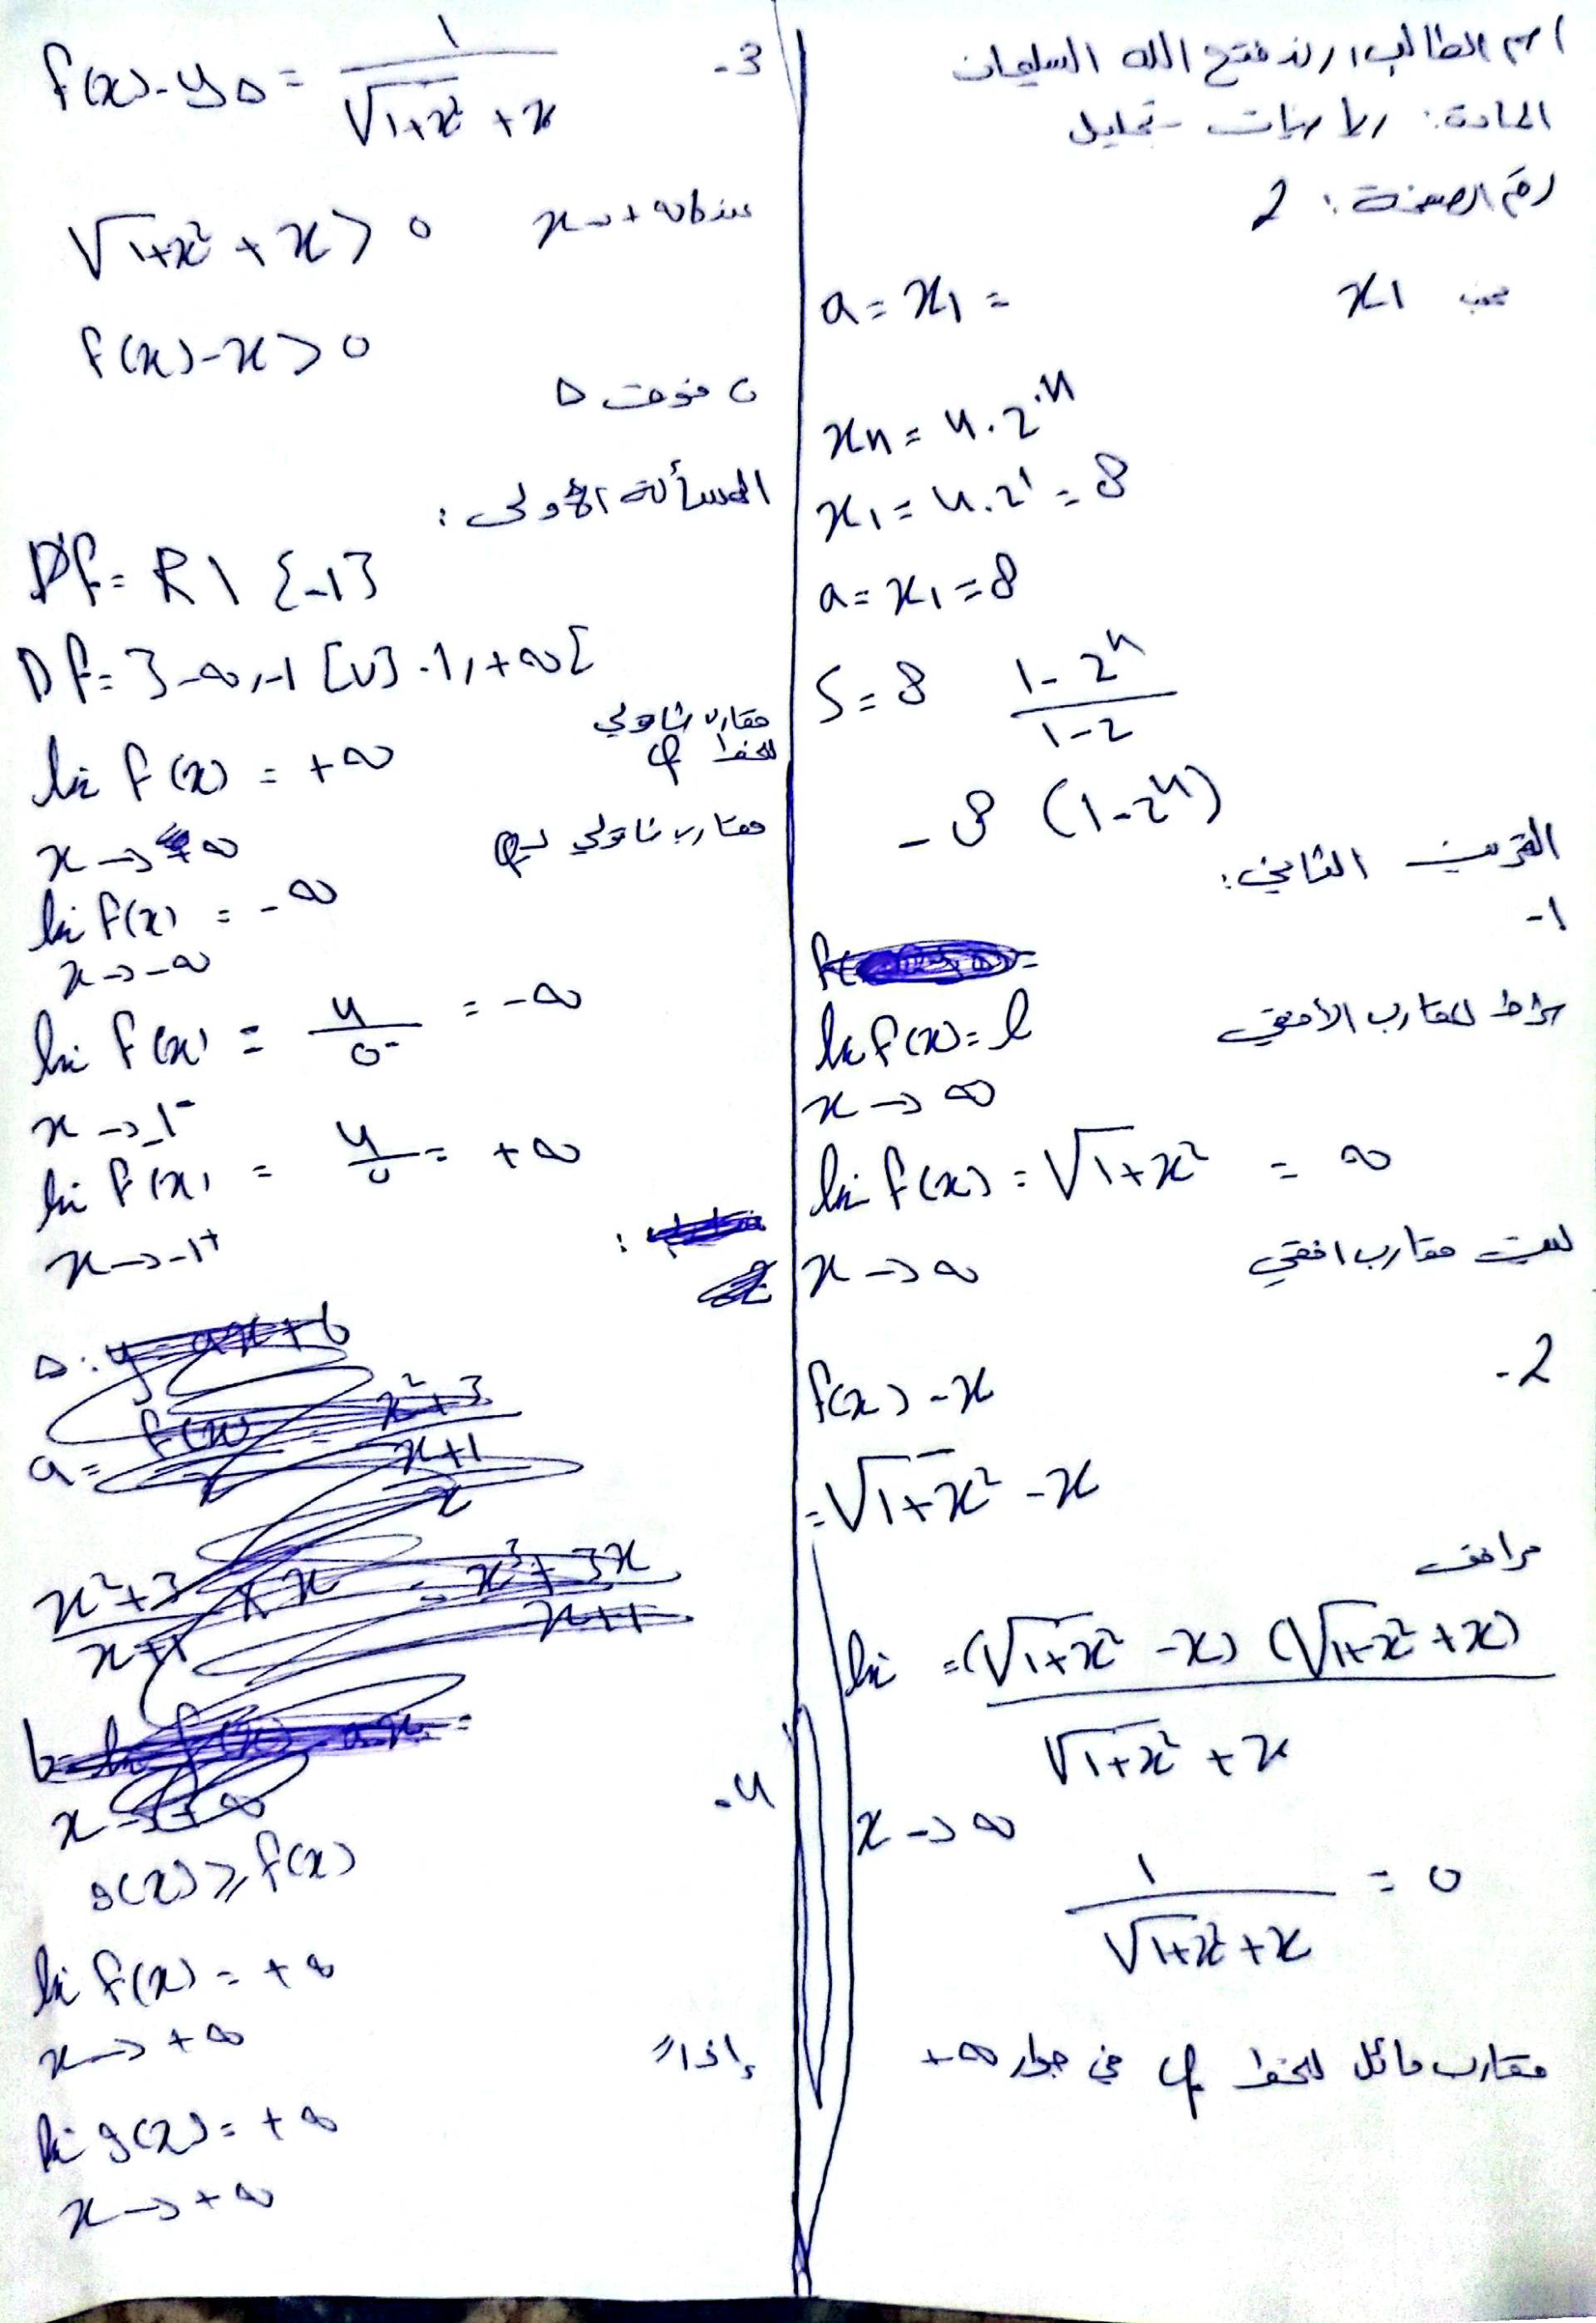 اسم الطالب: رند فتح الله السليمان
المادة: رياضيات - تحليل
رقم الصفحة: 2
نحسب x1
a = x1 =
xn = 4.2^n
x1 = 4.2^1 = 8
a = x1 = 8
S = 8 (1-2^n)/(1-2)
-8 (1-2^n)
التمرين الثاني:
-1
lim f(x) = l شرط المقارب الأفقي
x→∞
lim f(x) = √(1+x²) = ∞
x→∞ ليست مقارب افقي
-2
f(x) - x
= √(1+x²) - x
مرافق
lim = (√(1+x²) - x)(√(1+x²) + x) / (√(1+x²) + x)
x→∞
1/(√(1+x²) + x) = 0
مقارب مائل للخط C في جوار +∞
-3
f(x) - yΔ = 1/(√(1+x²) + x)
√(1+x²) + x > 0 عندما x→+∞
f(x) - x > 0
C فوق Δ
المسألة الأولى:
Df = R\{-1}
Df = ]-∞,-1[∪]-1,+∞[
lim f(x) = +∞
x→+∞
lim f(x) = -∞
x→-∞
lim f(x) = 4/0⁻ = -∞
x→-1⁻
lim f(x) = 4/0 = +∞
x→-1⁺
-4
g(x) ≥ f(x)
lim f(x) = +∞
x→+∞
إذاً
lim g(x) = +∞
x→+∞